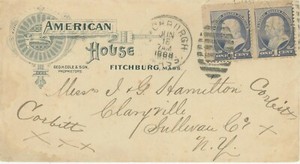 AMERICAN
House
& SON,
PROPRIETORS
FITCHBURG, MASS.
FITCHBURG
JUN
1888
Messrs J & G Hamilton
Claryville
Sullivan Co
N.Y.
Corbitt
Corbitt